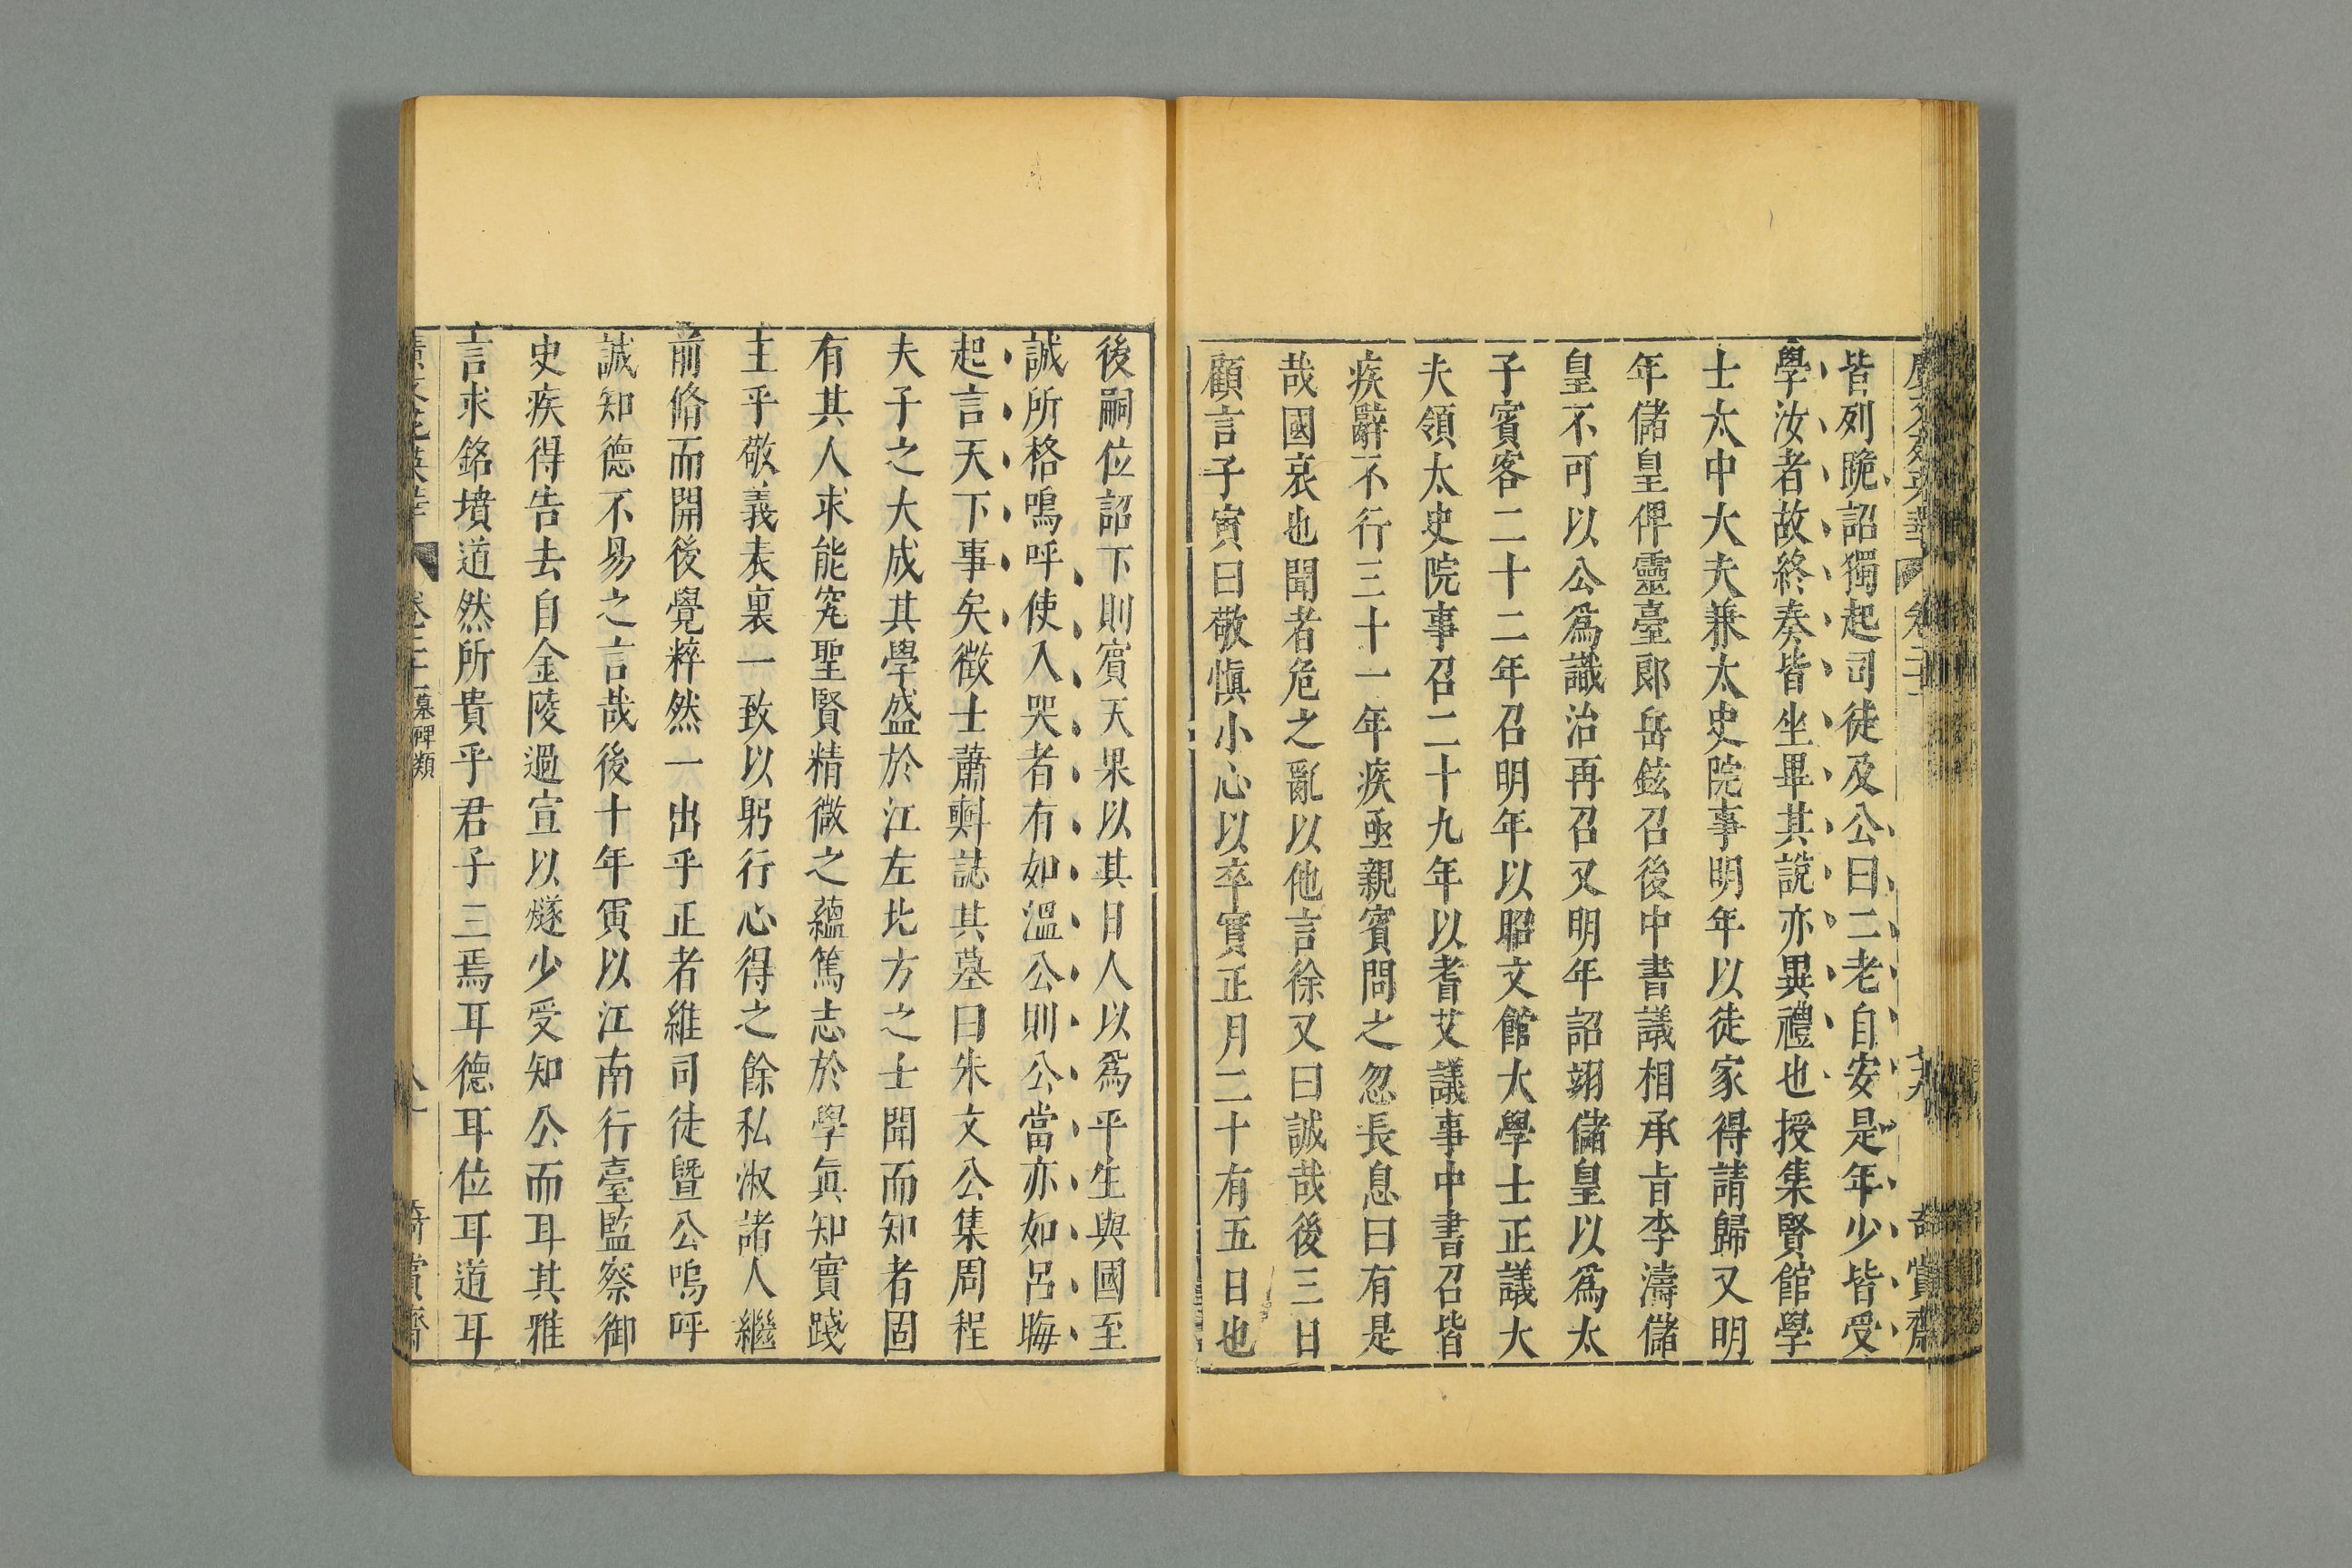 皆列跪詔獨起司徒及公曰二老自安是年少皆受
學汝者故終奏皆坐畢其說亦異禮也授集賢館學
士太中大夫兼太史院事明年以徒家得請歸又明
年儲皇俾靈臺郎岳鉉召後中書議相承旨李濤儲
皇不可以公爲識治再召又明年詔翊儲皇以爲太
子賓客二十二年召明年以昭文館大學士正議大
夫領太史院事召二十九年以耆艾議事中書召皆
疾辭不行三十一年疾亟親賓問之忽長息曰有是
哉國哀也聞者危之亂以他言徐又曰誠哉後三日
顧言子寅曰敬慎小心以卒實正月二十有五日也
後嗣位詔下則賓天果以其日人以爲平生與國至
誠所格嗚呼使入哭者有如溫公則公當亦如呂晦
起言天下事矣徵士蕭㪺誌其墓曰朱文公集周程
夫子之大成其學盛於江左北方之士聞而知者固
有其人求能究聖賢精微之蘊篤志於學眞知實踐
主乎敬義表裏一致以躬行心得之餘私淑諸人繼
前脩而開後覺粹然一出乎正者維司徒曁公嗚呼
誠知德不易之言哉後十年寅以江南行臺監察御
史疾得告去自金陵過宣以燧少受知公而耳其雅
言求銘墳道然所貴乎君子三焉耳德耳位耳道耳
墓碑類